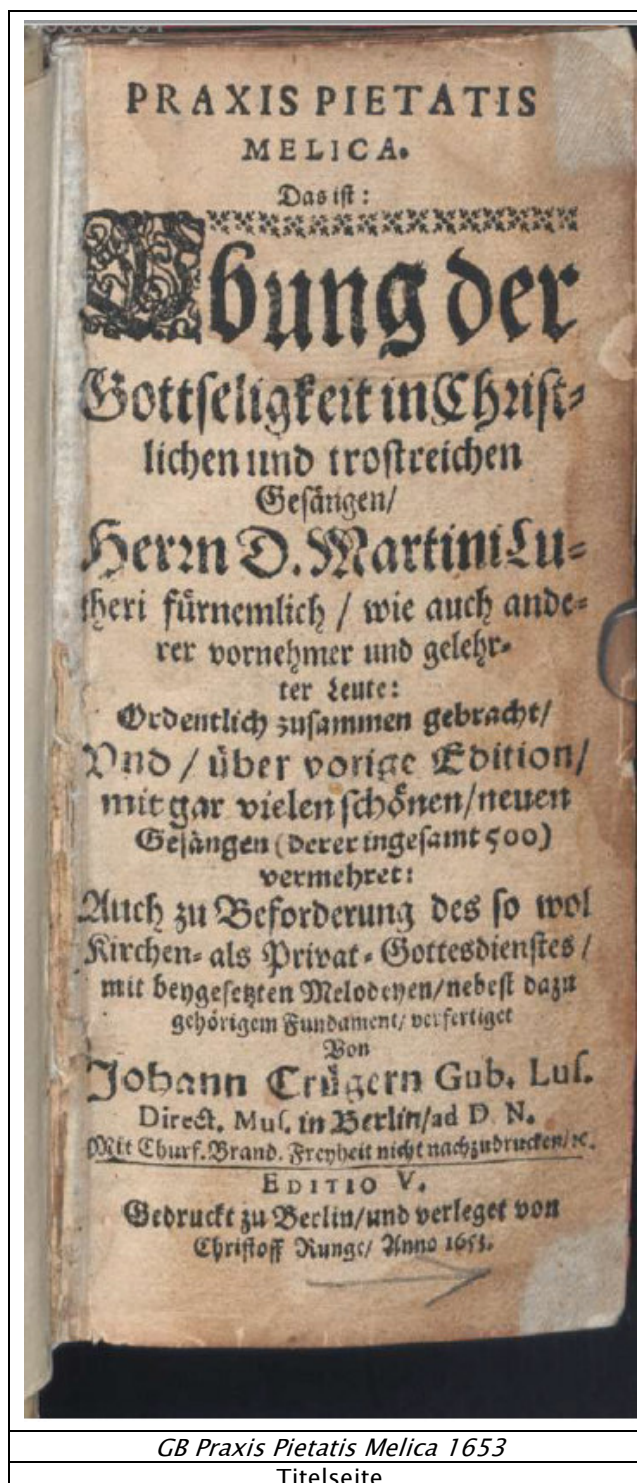 PRAXIS PIETATIS
MELICA.
Das ist:
Vbung der
Gottseligkeit in Christ-
lichen und trostreichen
Gesängen/
Herrn D. Martini Lu-
theri fürnemlich / wie auch ande-
rer vornehmer und gelehr-
ter Leute:
Ordentlich zusammen gebracht/
Vnd / über vorige Edition/
mit gar vielen schönen/neuen
Gesängen (derer ingesamt 500)
vermehret:
Auch zu Beforderung des so wol
Kirchen- als Privat-Gottesdienstes /
mit beygesetzten Melodeyen/nebest dazu
gehörigem Fundament/ verfertiget
Von
Johann Crügern Gub. Lus.
Direct. Mus. in Berlin/ad D. N.
Mit Churf. Brand. Freyheit nicht nachzudrucken/ꝛc.
EDITIO V.
Gedruckt zu Berlin/und verleget von
Christoff Runge/ Anno 1653.
GB Praxis Pietatis Melica 1653
Titelseite